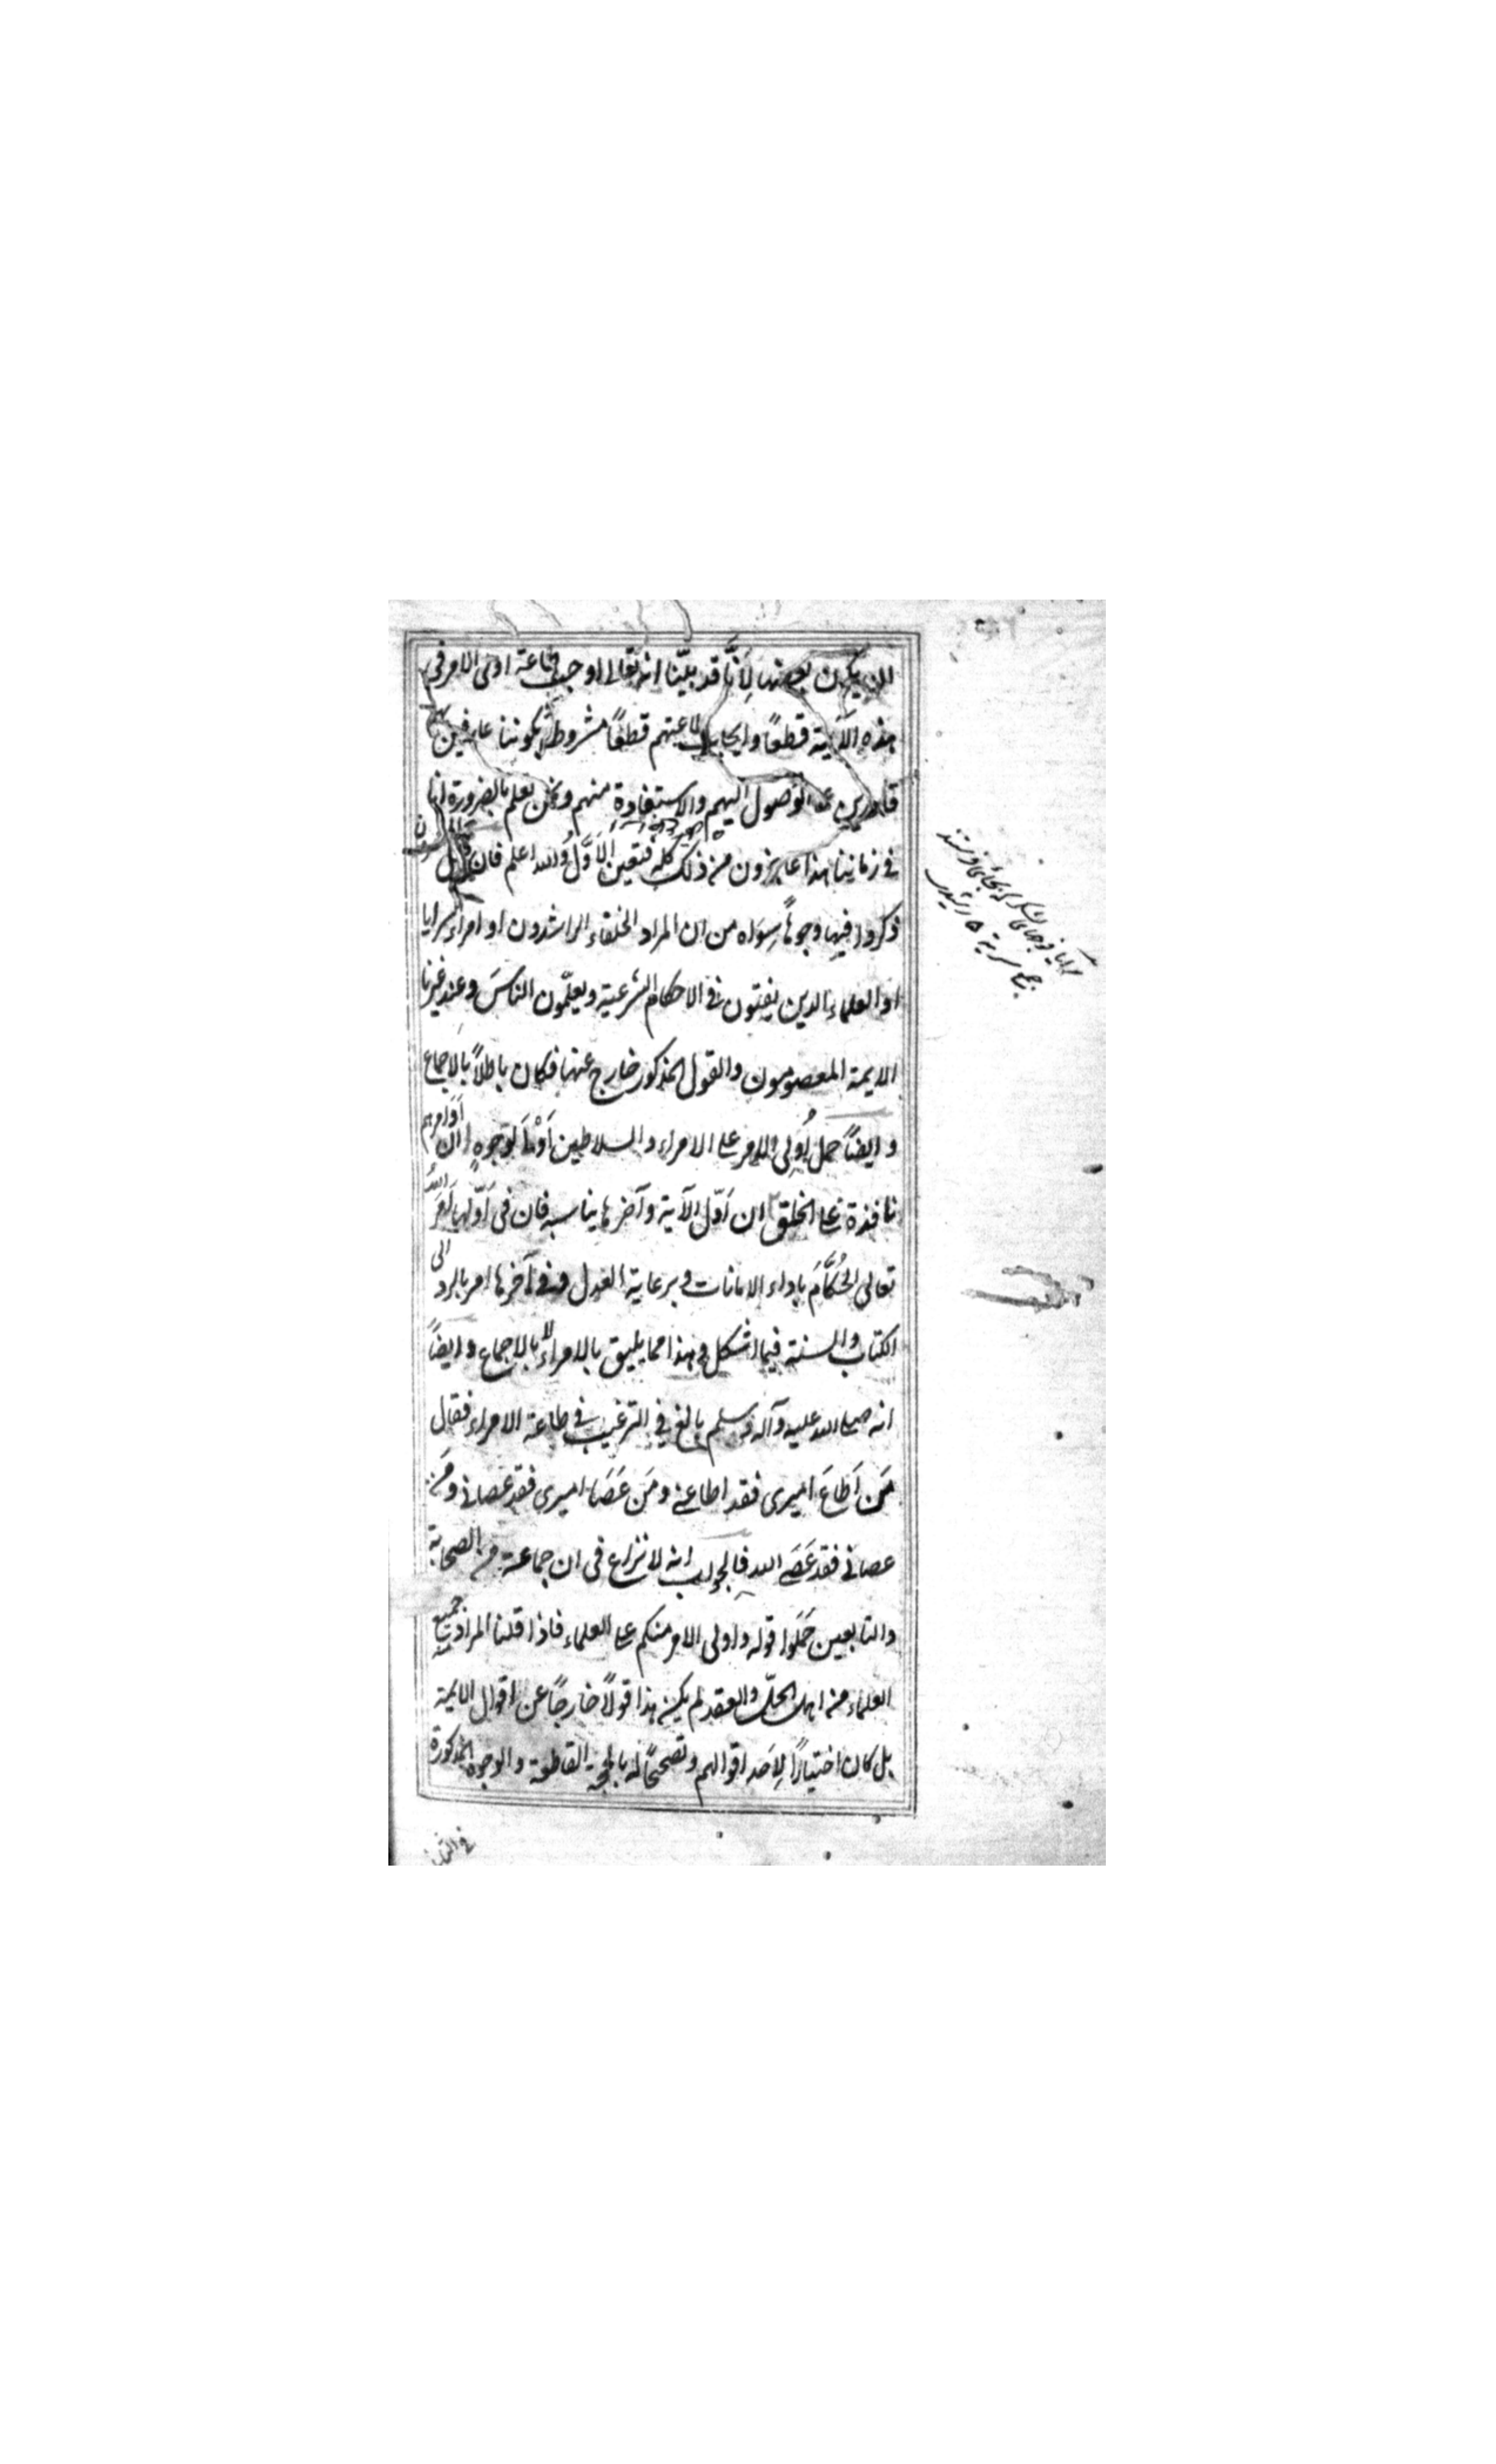 ان يكون بعضها لِأنَّا قد بيّنا انه تعالى اوجب طاعة اولى الامر فى
هذه الآية قطعًا وايجاب طاعتهم قطعًا مشروط بكوننا عارفين بهم
قادرين على الوصول اليهم والاستفادة منهم ونحن نعلم بالضرورة انا
فى زماننا هذا عاجزون من ذلك كله فتعين الأوَّلُ والله اعلم فان قيل
المفسرون
ذكروا فيها وجوهاً سِوَاه من ان المراد الخلفاء الراشدون او امراء سرايا
او العلماء الذين يفتون فى الاحكام الشرعية ويعلّمون الناسَ وعند غيرنا
الايمة المعصومون والقول المذكور خارج عنها فكان باطلاً بالاجماع
وايضاً حمل أُولِى الامر على الامراء والسلاطين أَوْلَى لوجوهٍ ان اَوَامرهم
نافذة على الخلق ان اَوّل الآية وآخرها يناسبه فان فى اَوّلها اَمَرَ اللهُ
تعالى الحُكَّامَ باداء الامانات وبرعاية العدل وفى آخرها امر بالرد الى
الكتاب والسنة فيما اشكل وهذا مما يليق بالامراء لا بالاجماع وايضاً
انه صلى الله عليه وآله وسلم بالغ فى الترغيب فى طاعة الامراء فقال
مَن اَطَاعَ اميرى فقد اطاعنى ومَن عَصَا اميرى فقد عَصانى ومَن
عصانى فقد عَصَى الله فالجواب انه لا نزاع فى ان جماعة من الصحابة
والتابعين حَمَلوا قوله واولى الامر منكم على العلماء فاذا قلنا المراد جميع
العلماء من اهل الحلّ والعقد لم يكن هذا قولاً خارجًا عن اقوال الايمة
بل كان اختيارًا لِاَحَد اقوالهم وتصحيحًا له بالحجة القاطعة والوجوه المذكورة
جمع سرية